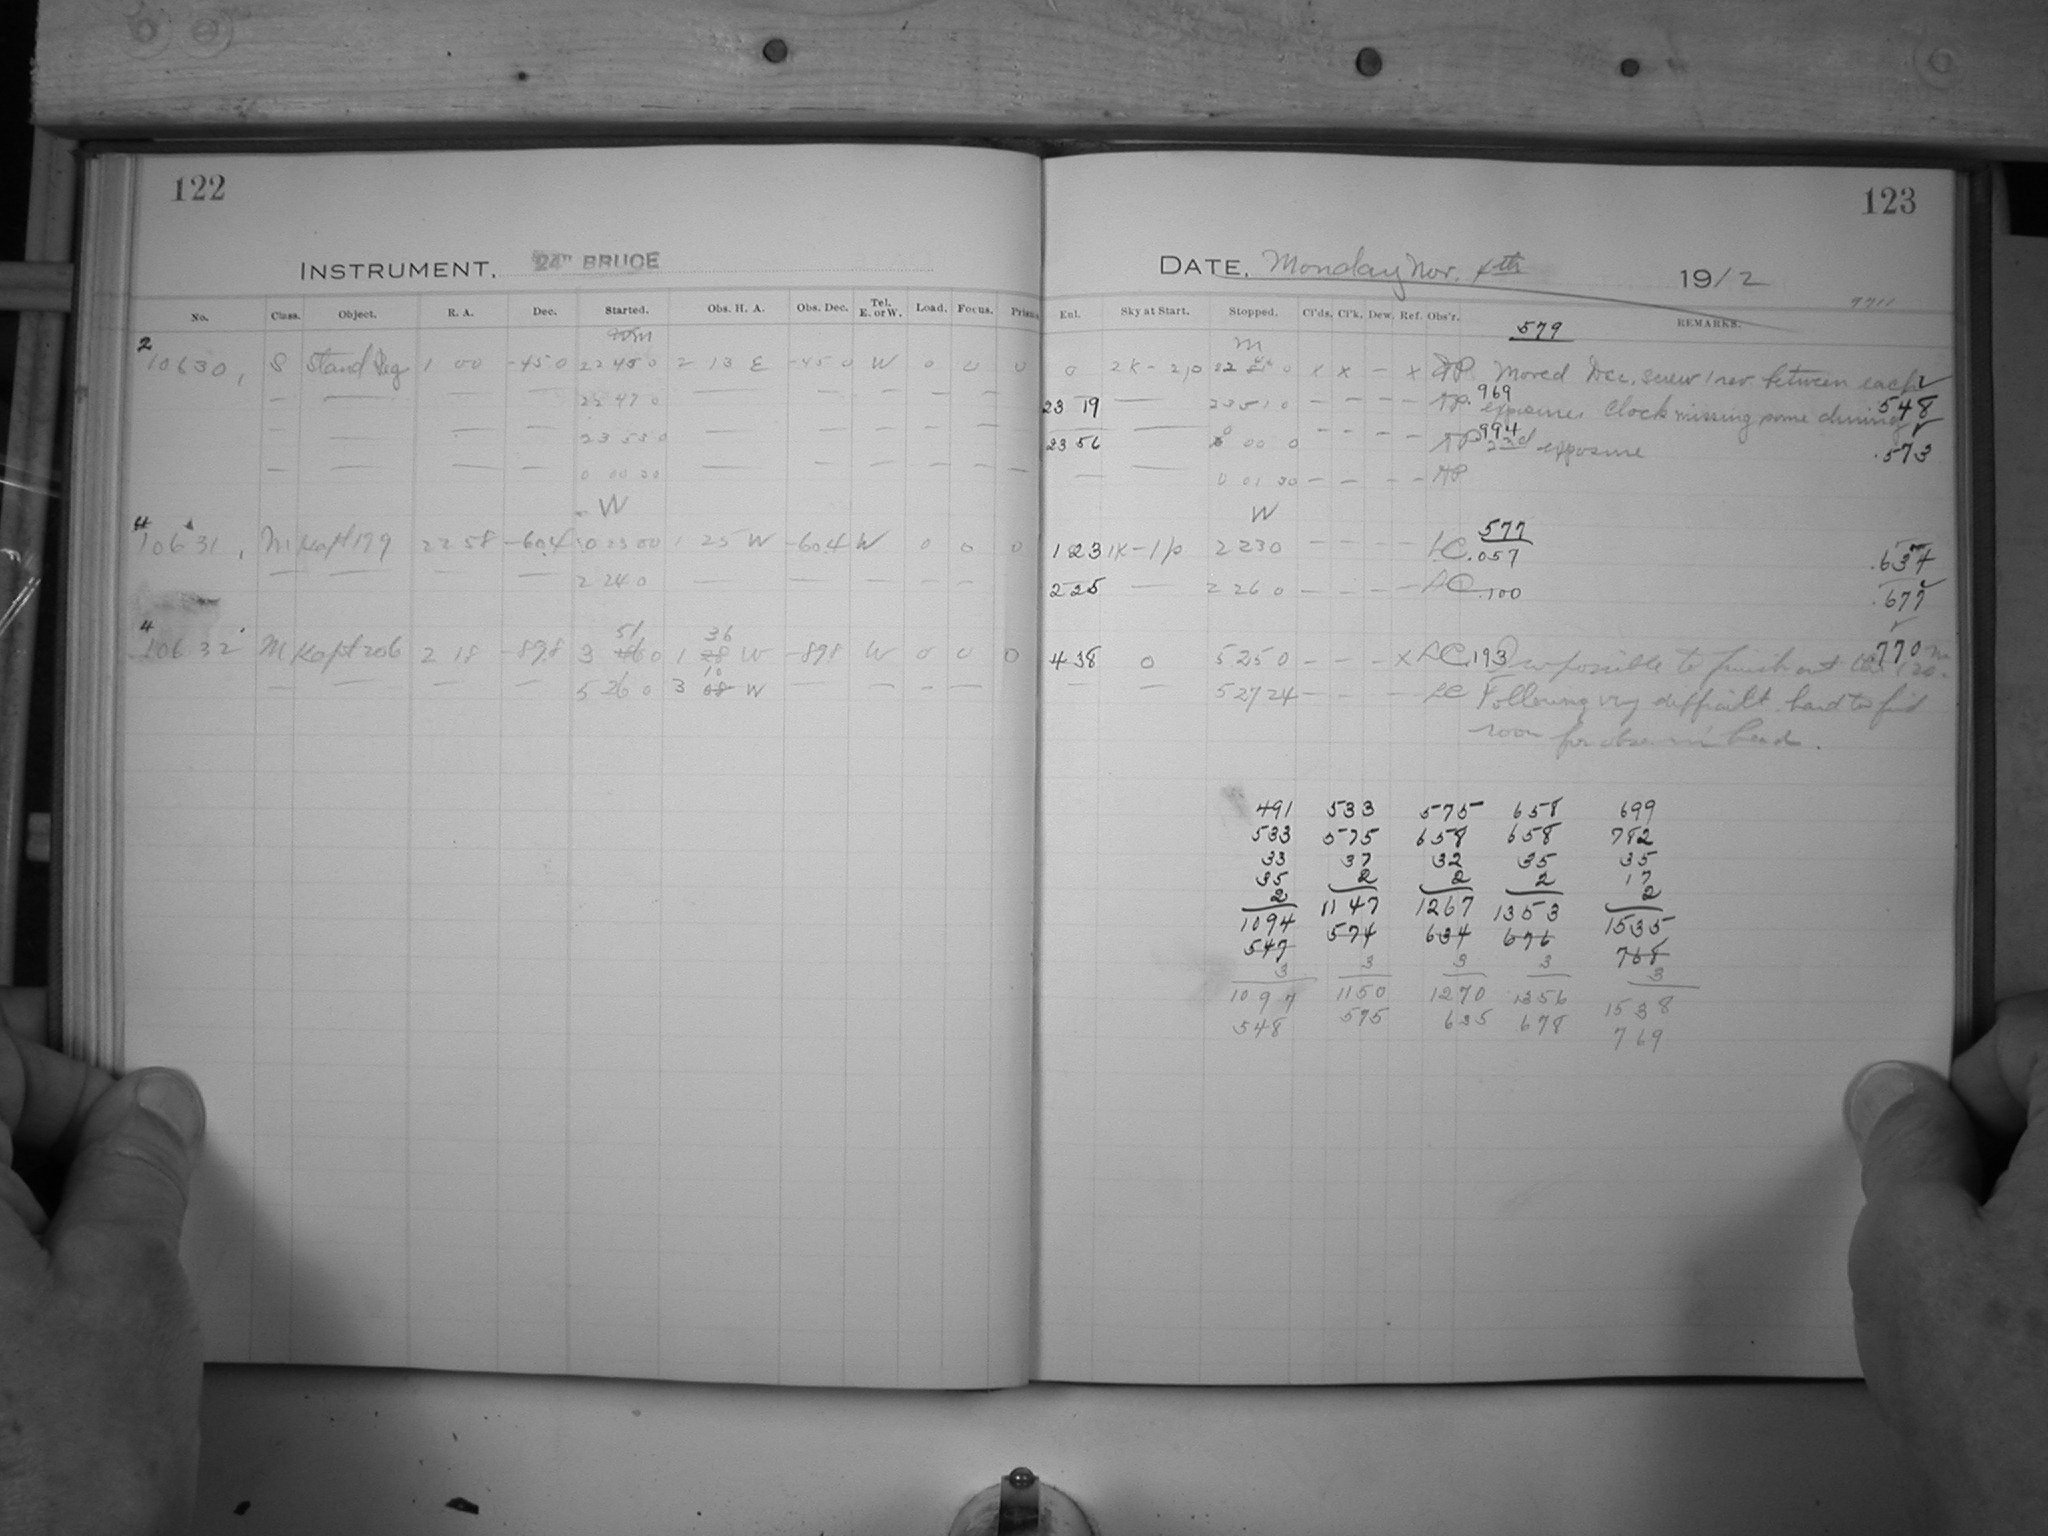 122
INSTRUMENT, 24" BRUCE
No. Class. Object. R. A. Dec. Started. Obs. H. A. Obs. Dec. Tel. E. or W. Load. Focus. Prism.
2
10630, S Stand Reg 1 00 -45 0 22 45 0 2 13 E -45 0 W 0 0 0
— — — — 22 47 0 — — — — — —
— — — — 23 53 0 — — — — — —
— — — — 0 00 30 — — — — — —
W
4
10631, M Kapt 179 22 58 -60.4 0 23 00 1 25 W -60.4 W 0 0 0
— — — — 2 24 0 — — — — —
51 36
4
10632 M Kapt 206 2 18 -89.8 3 46 0 1 28 W -898 W 0 0 0
10
— — — — 5 26 0 3 08 W — — — —
123
DATE, Monday Nov. 4th 1912
9711
Enl. Sky at Start. Stopped. Cl'ds. Cl'k. Dew. Ref. Obs'r. REMARKS.
579
m
0 2K - 2p 22 0 x x — x Moved Dec. screw 1 rev. between each
969
23 19 — 23 51 0 — — — — exposure. Clock missing some during 548
994
23 56 — 0 00 0 — — — — 2nd exposure .573
— — 0 01 30 — — — —
W
577
1 23 1K-1p 2 23 0 LC .057 .634
2 25 — 2 26 0 — — — — LC .100 .677
4 38 0 5 25 0 — — — x LC .193 Impossible to finish out the 120 m. 770
— — 5 27 24 — — — — LC Following very difficult. hard to find
room for observer's head.
491 533 575 658 699
533 575 658 658 782
33 37 32 35 35
35 2 2 2 17
2 2
1094 1147 1267 1353 1535
547 574 634 676 768
3 3 3 3 3
1097 1150 1270 1356 1538
548 575 635 678 769